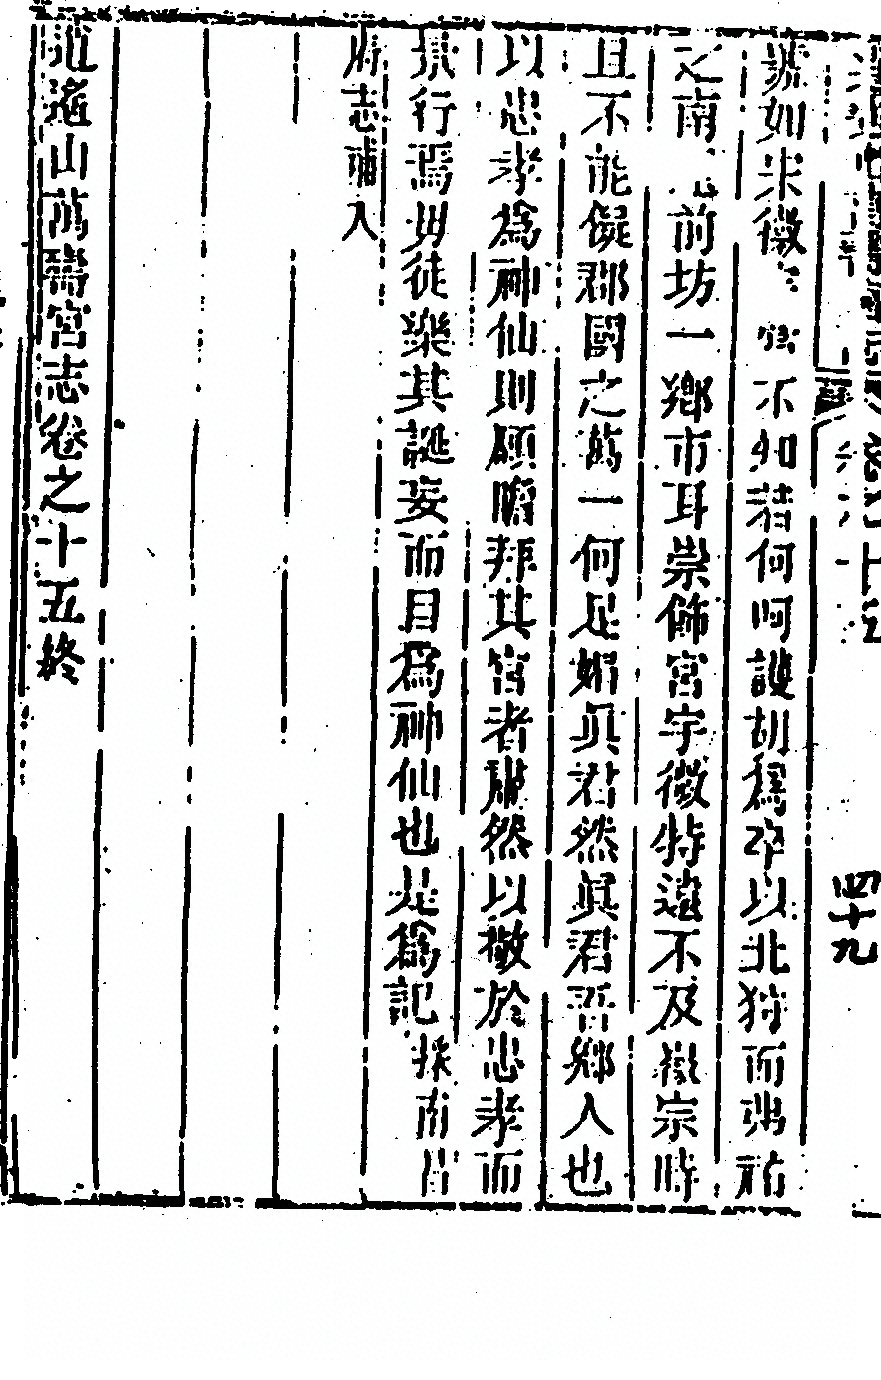 號如宋徽 不知若何呵護胡為卒以北狩而弗祐
之南 前坊一鄉市耳崇飾宮宇徵特遠不及徽宗時
且不能儗郡國之萬一何足媚眞君然眞君吾鄉人也
以忠孝爲神仙則顧瞻拜其宮者肅然以敬於忠孝而
景行焉毋徒樂其誕妄而目爲神仙也是爲記採南昌
府志補入
逍遙山萬壽宮志卷之十五終
四十九